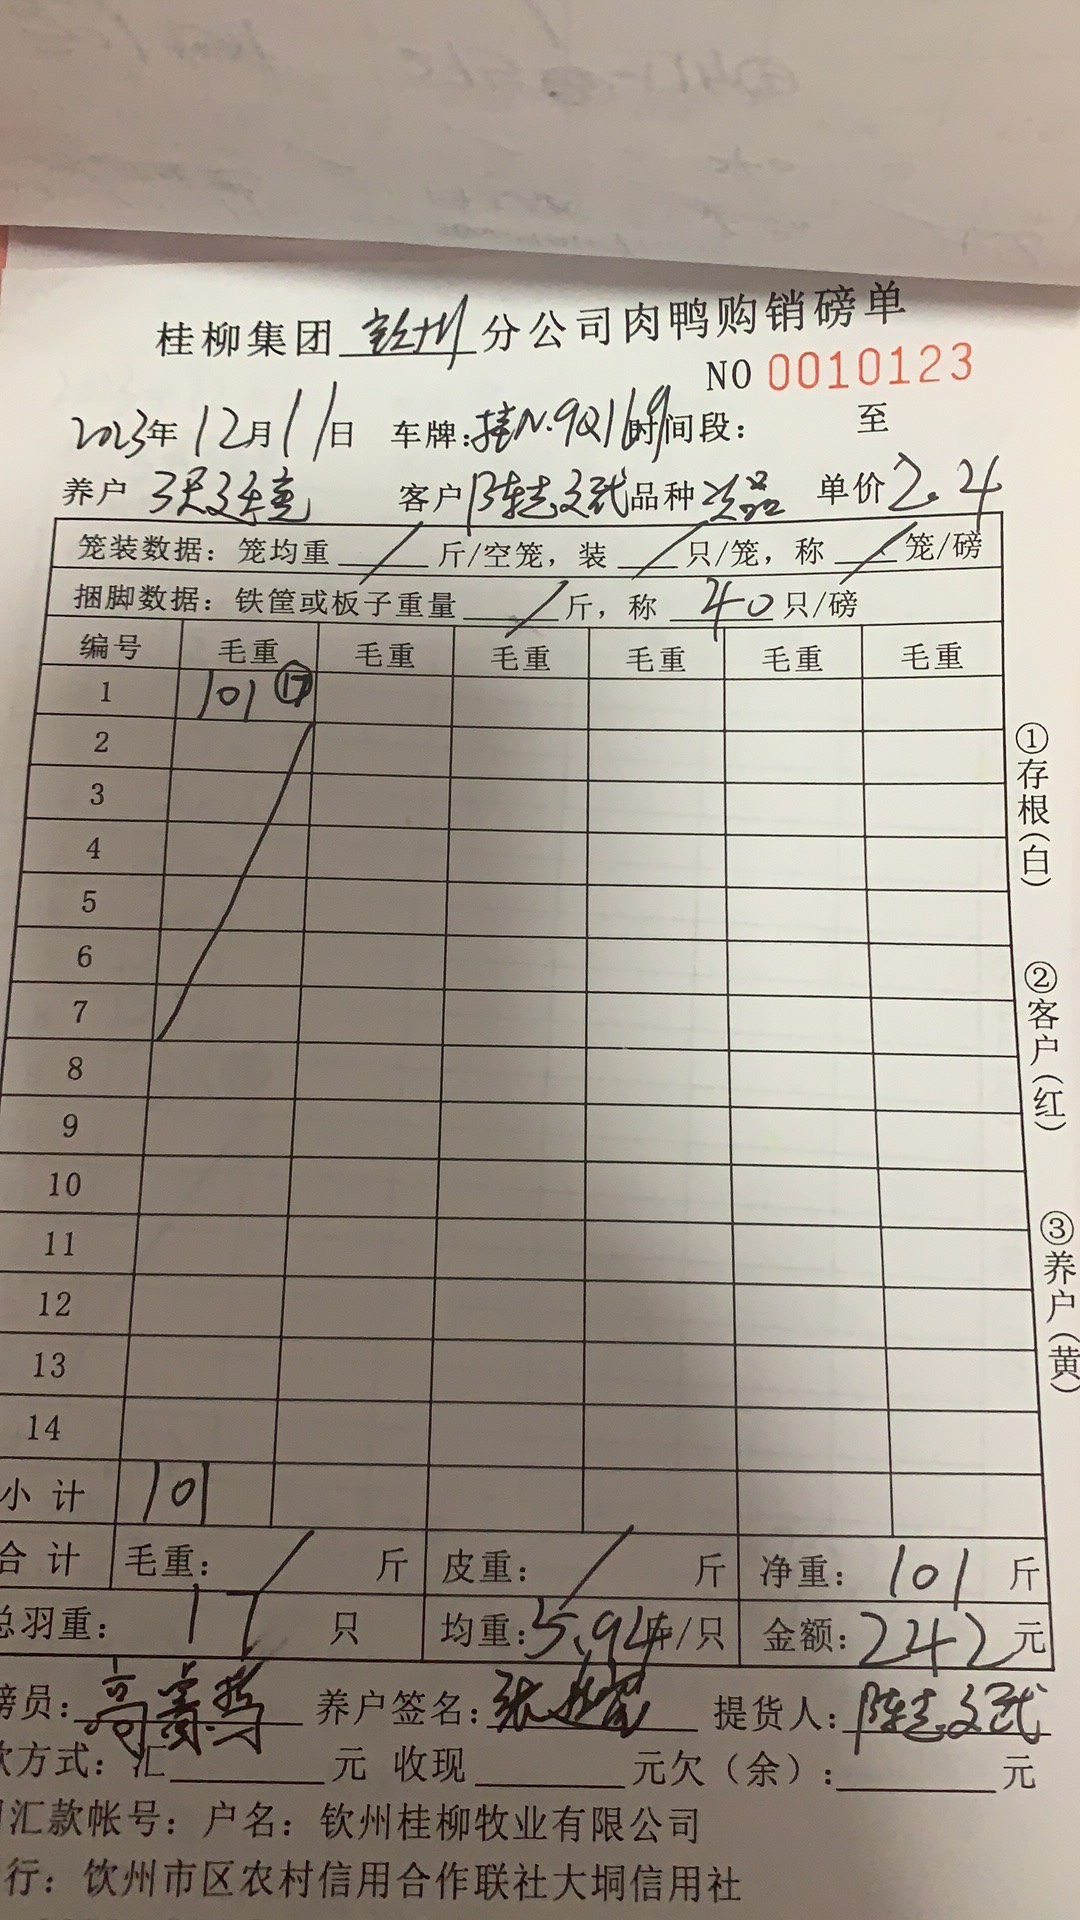 桂柳集团 钦州 分公司肉鸭购销磅单
NO 0010123
2023年12月11日 车牌:桂N.9Q169时间段: 至
养户 张廷 客户 陈志武 品种 次品 单价2.4
笼装数据: 笼均重 / 斤/空笼, 装 / 只/笼, 称 / 笼/磅
捆脚数据: 铁筐或板子重量 / 斤, 称 40 只/磅
编号 毛重 毛重 毛重 毛重 毛重 毛重
1 101 ⑰
2
3
4
5
6
7
8
9
10
11
12
13
14
小计 101
合计 毛重: / 斤 皮重: / 斤 净重: 101 斤
总羽重: 17 只 均重:5.94斤/只 金额:242元
磅员: 养户签名: 张 提货人: 陈志武
款方式: 汇 元 收现 元欠(余): 元
汇款帐号: 户名: 钦州桂柳牧业有限公司
行: 钦州市区农村信用合作联社大垌信用社
①存根(白)
②客户(红)
③养户(黄)